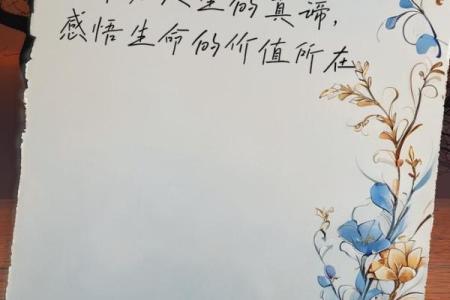 生的真谛，
感悟生命的价值所在